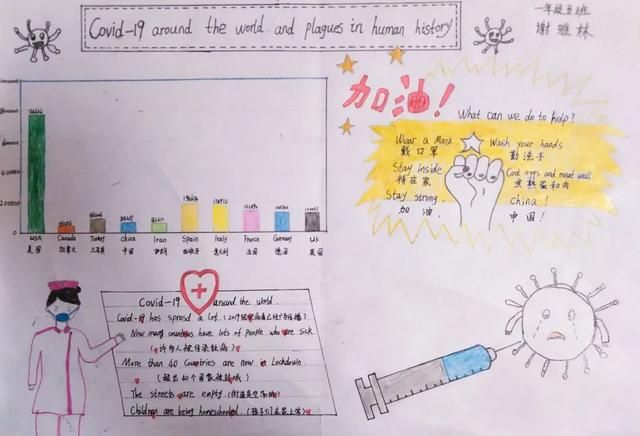 Covid-19 around the world and plagues in human history
一年级五班
谢雅林
加油!
What can we do to help?
Wear a Mask
戴口罩
Wash your hands
勤洗手
Stay inside
待在家
Cook eggs and meat well
煮熟蛋和肉
Stay strong
加油
China!
中国!
USA
Canada
Turkey
China
Iran
Spain
Italy
France
Germany
UK
美国
加拿大
土耳其
中国
伊朗
西班牙
意大利
法国
德国
英国
Covid-19 around the world
Covid-19 has spread a lot.
Now many countries have lots of people who are sick
(许多人被传染致病)
More than 40 Countries are now in Lockdown.
(超出40个国家被封城)
The streets are empty (街道是空荡的)
Children are being homeschooled. (孩子们在家上学)